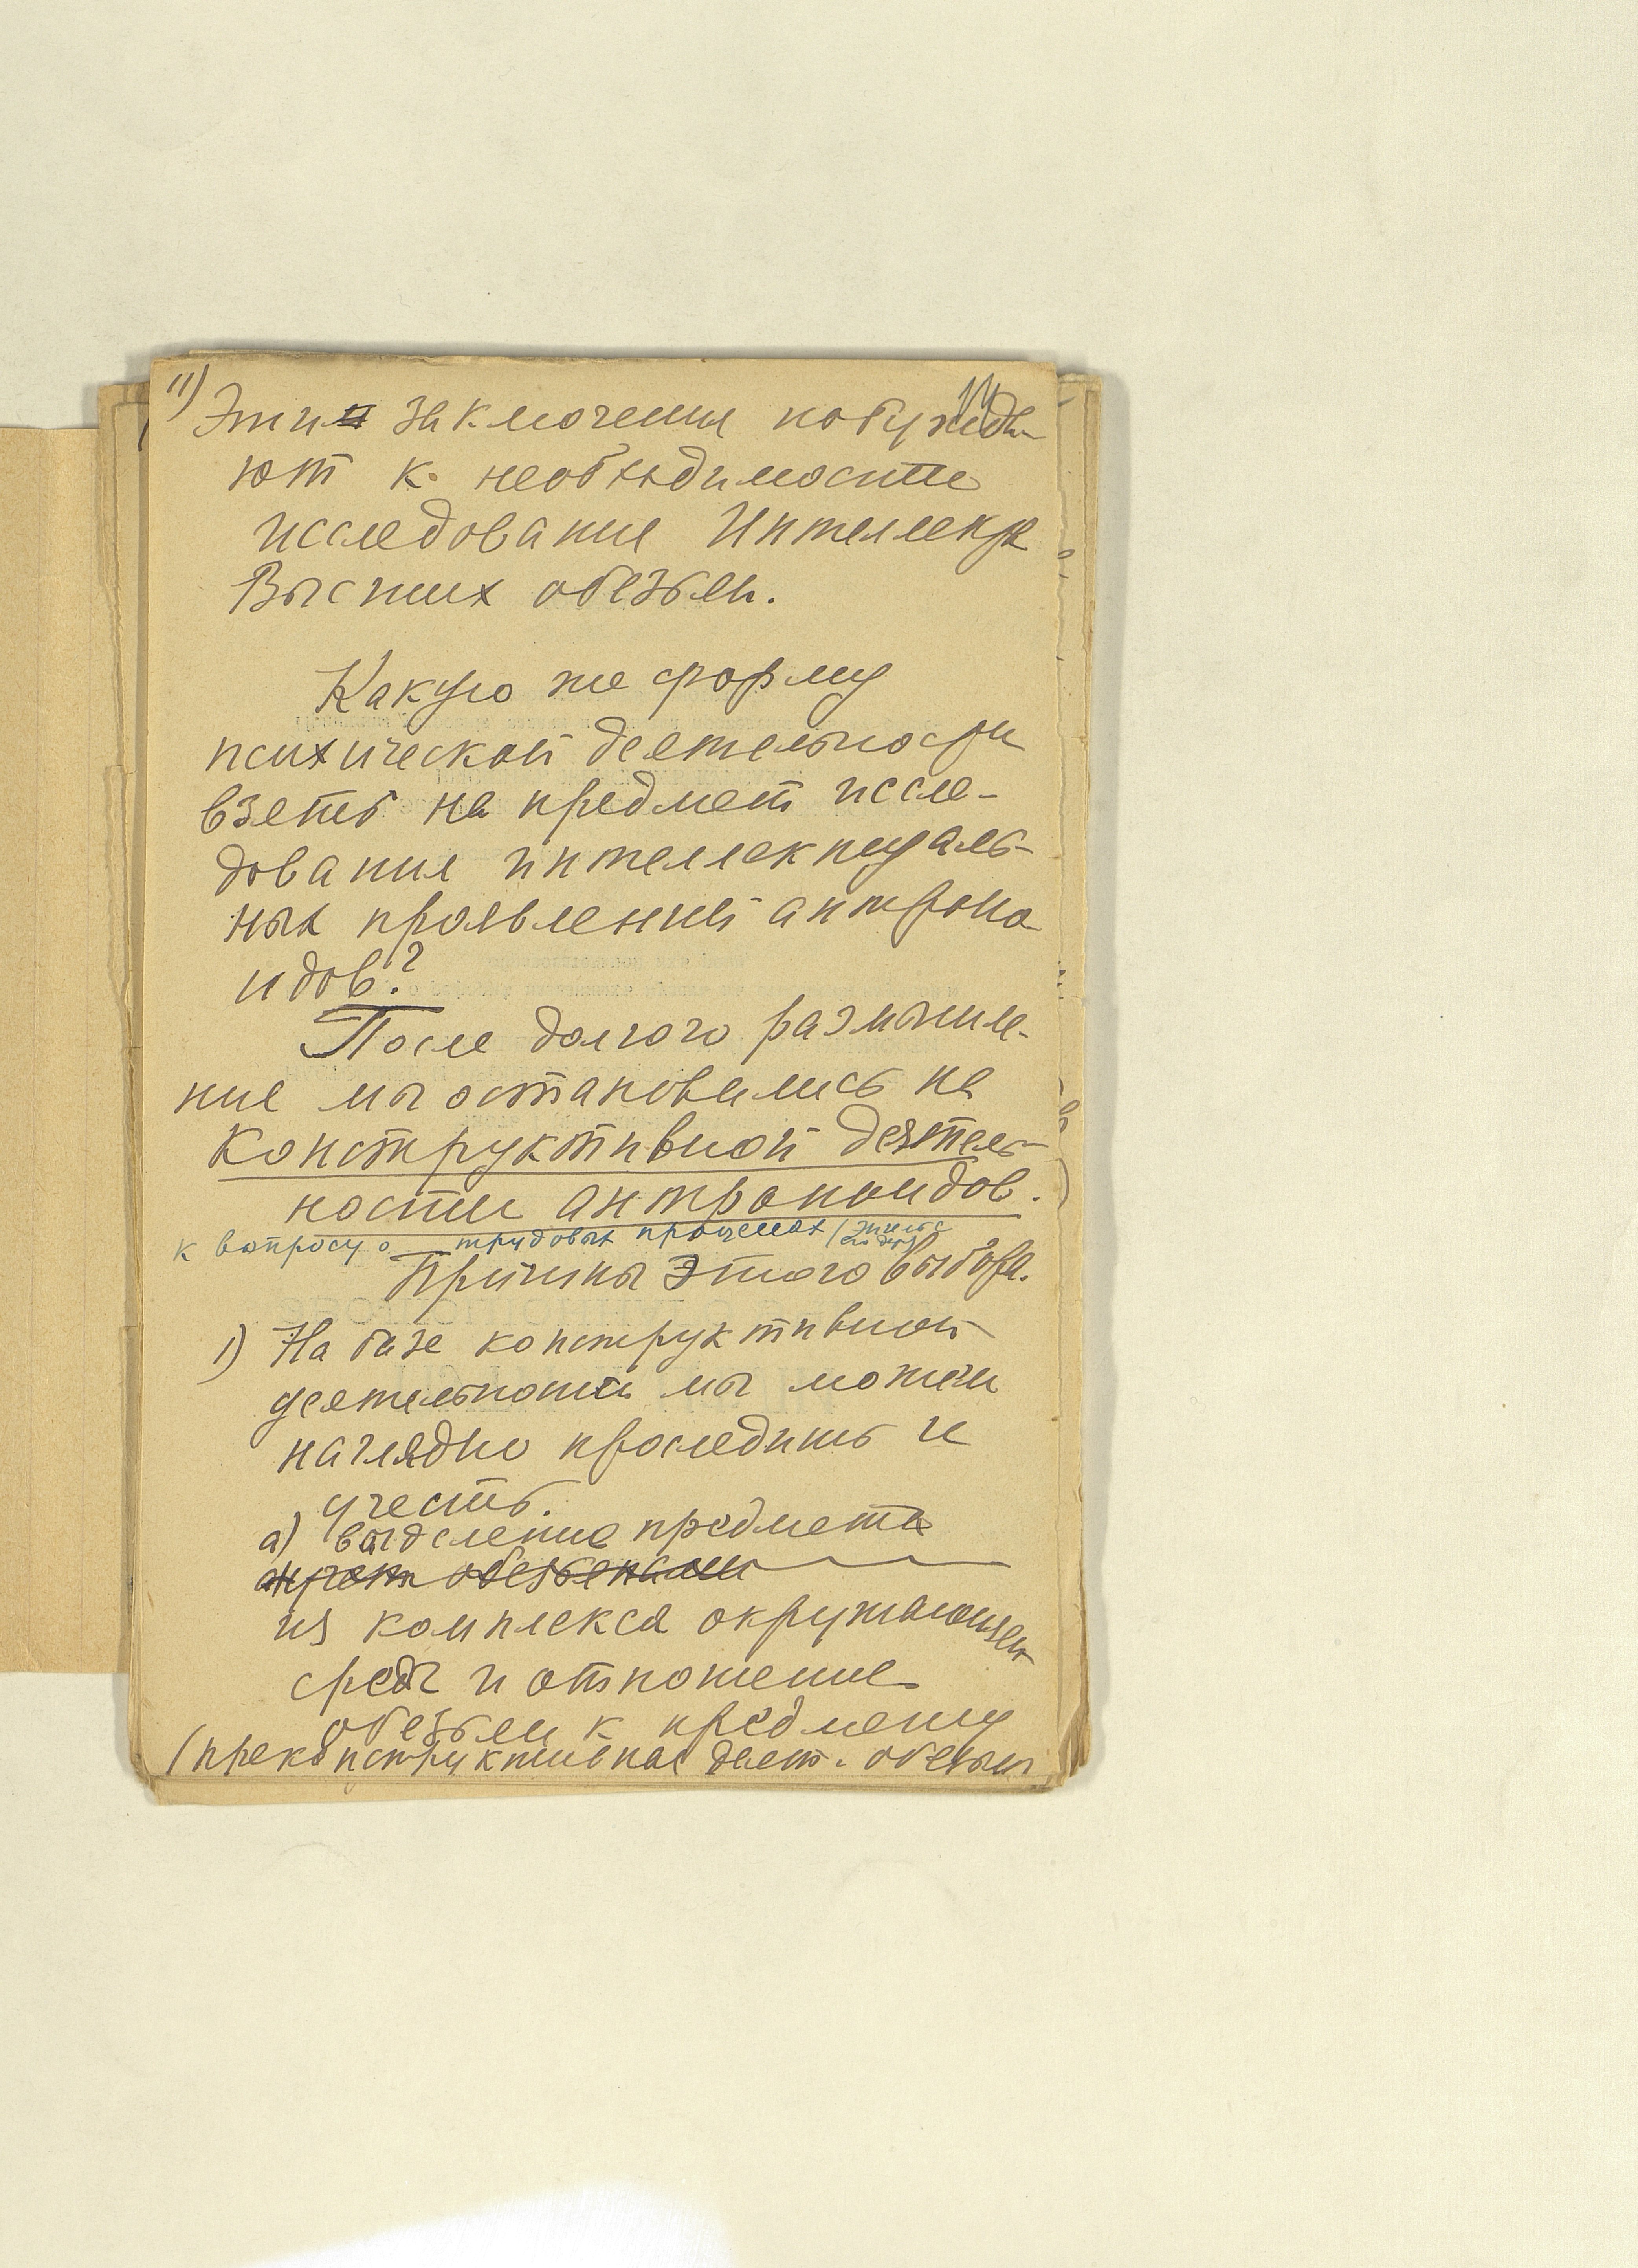 11)
11
Эти заключения побужда-
ют к необходимости
исследования Интеллекта
Высших обезьян.
Какую же форму
психической деятельности
взять на предмет иссле-
дования интеллектуаль-
ных проявлений антропо-
идов?
После долгого размышле-
ния мы остановились на
Конструктивной деятель-
ности антропоидов.
к вопросу о трудовых процессах (Энгельс
Причины этого выбора.
1) На базе конструктивной
деятельности мы можем
наглядно проследить и
учесть.
а) выделение предмета
обезьянами
из комплекса окружающей
среды и отношение
обезьян к предмету
(преконструктивная деят. обезьян